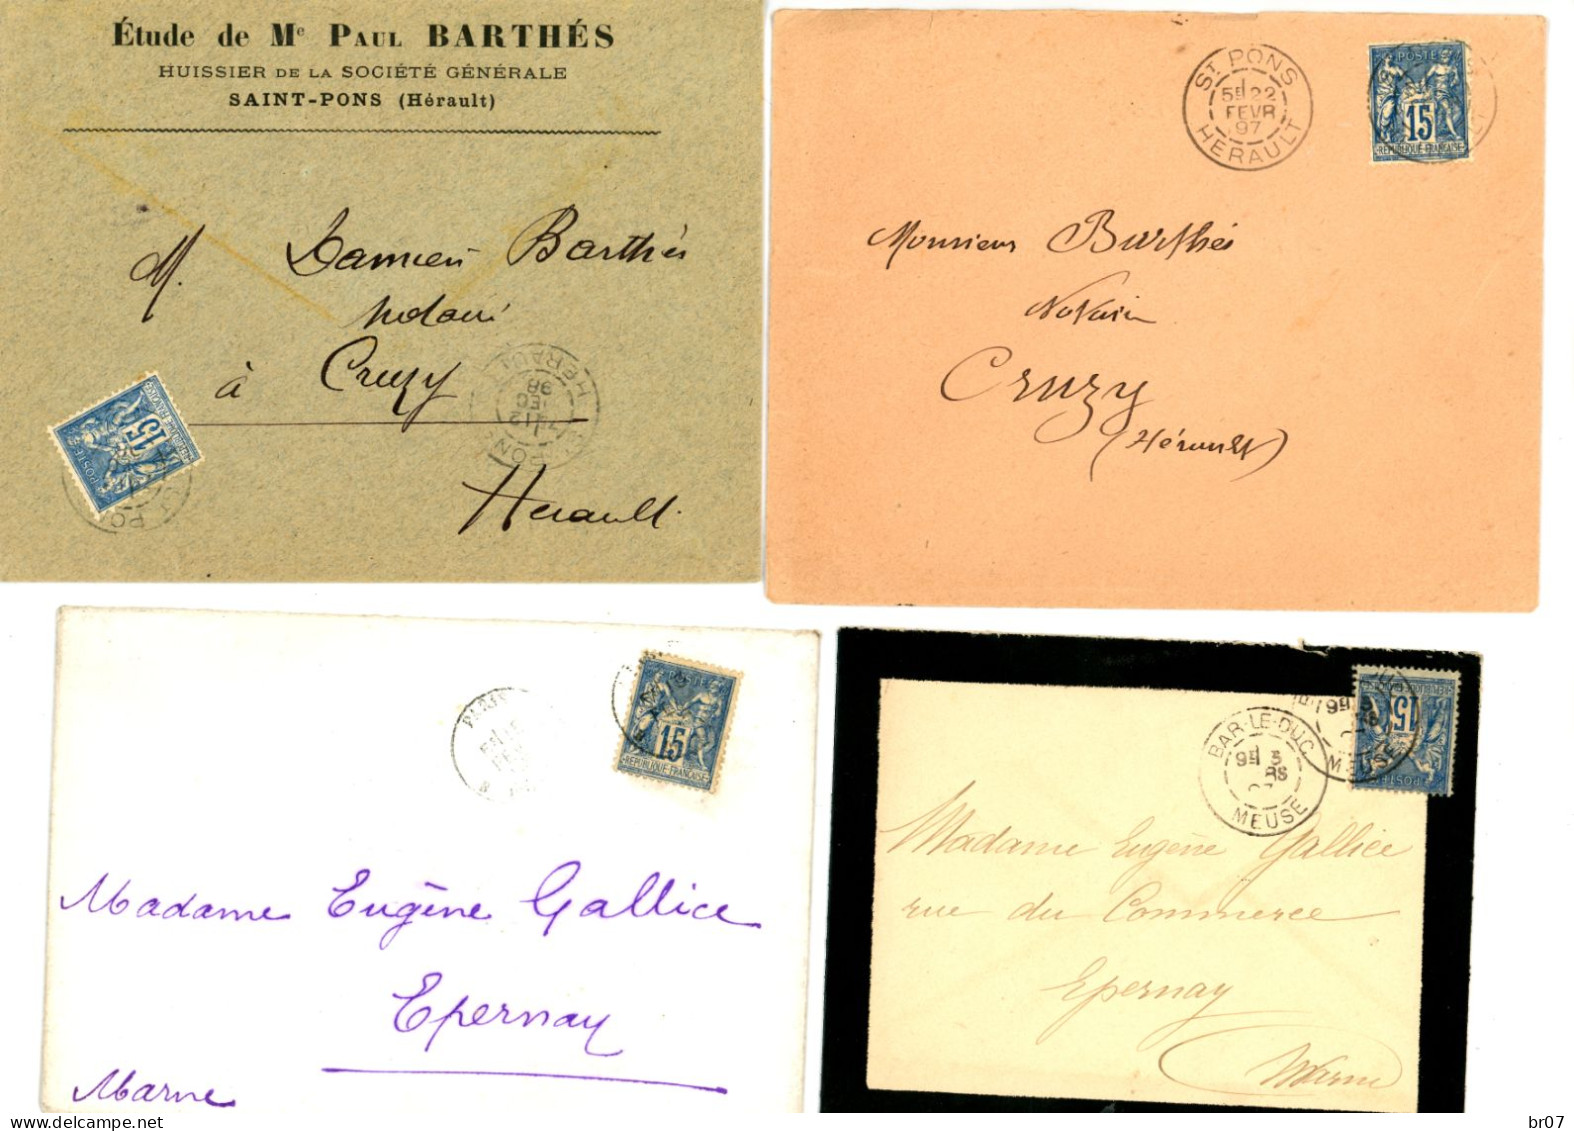 Étude de Me PAUL BARTHÉS
HUISSIER DE LA SOCIÉTÉ GÉNÉRALE
SAINT-PONS (Hérault)
M. Damien Barthés
Notaire
à Cruzy
Herault.
15
POSTE
HERAULT
12
DEC
98
ST PONS
5E 22
FEVR
97
HERAULT
POSTE
15
REPUBLIQUE FRANÇAISE
Monsieur Barthés
Notaire
Cruzy
(Hérault)
PARIS
15
REPUBLIQUE FRANÇAISE
Madame Eugène Gallice
Epernay
Marne
BAR-LE-DUC
9E 3
MEUSE
15
MEUSE
Madame Eugène Gallice
rue du Commerce
Epernay
Marne
delcampe.net
br07